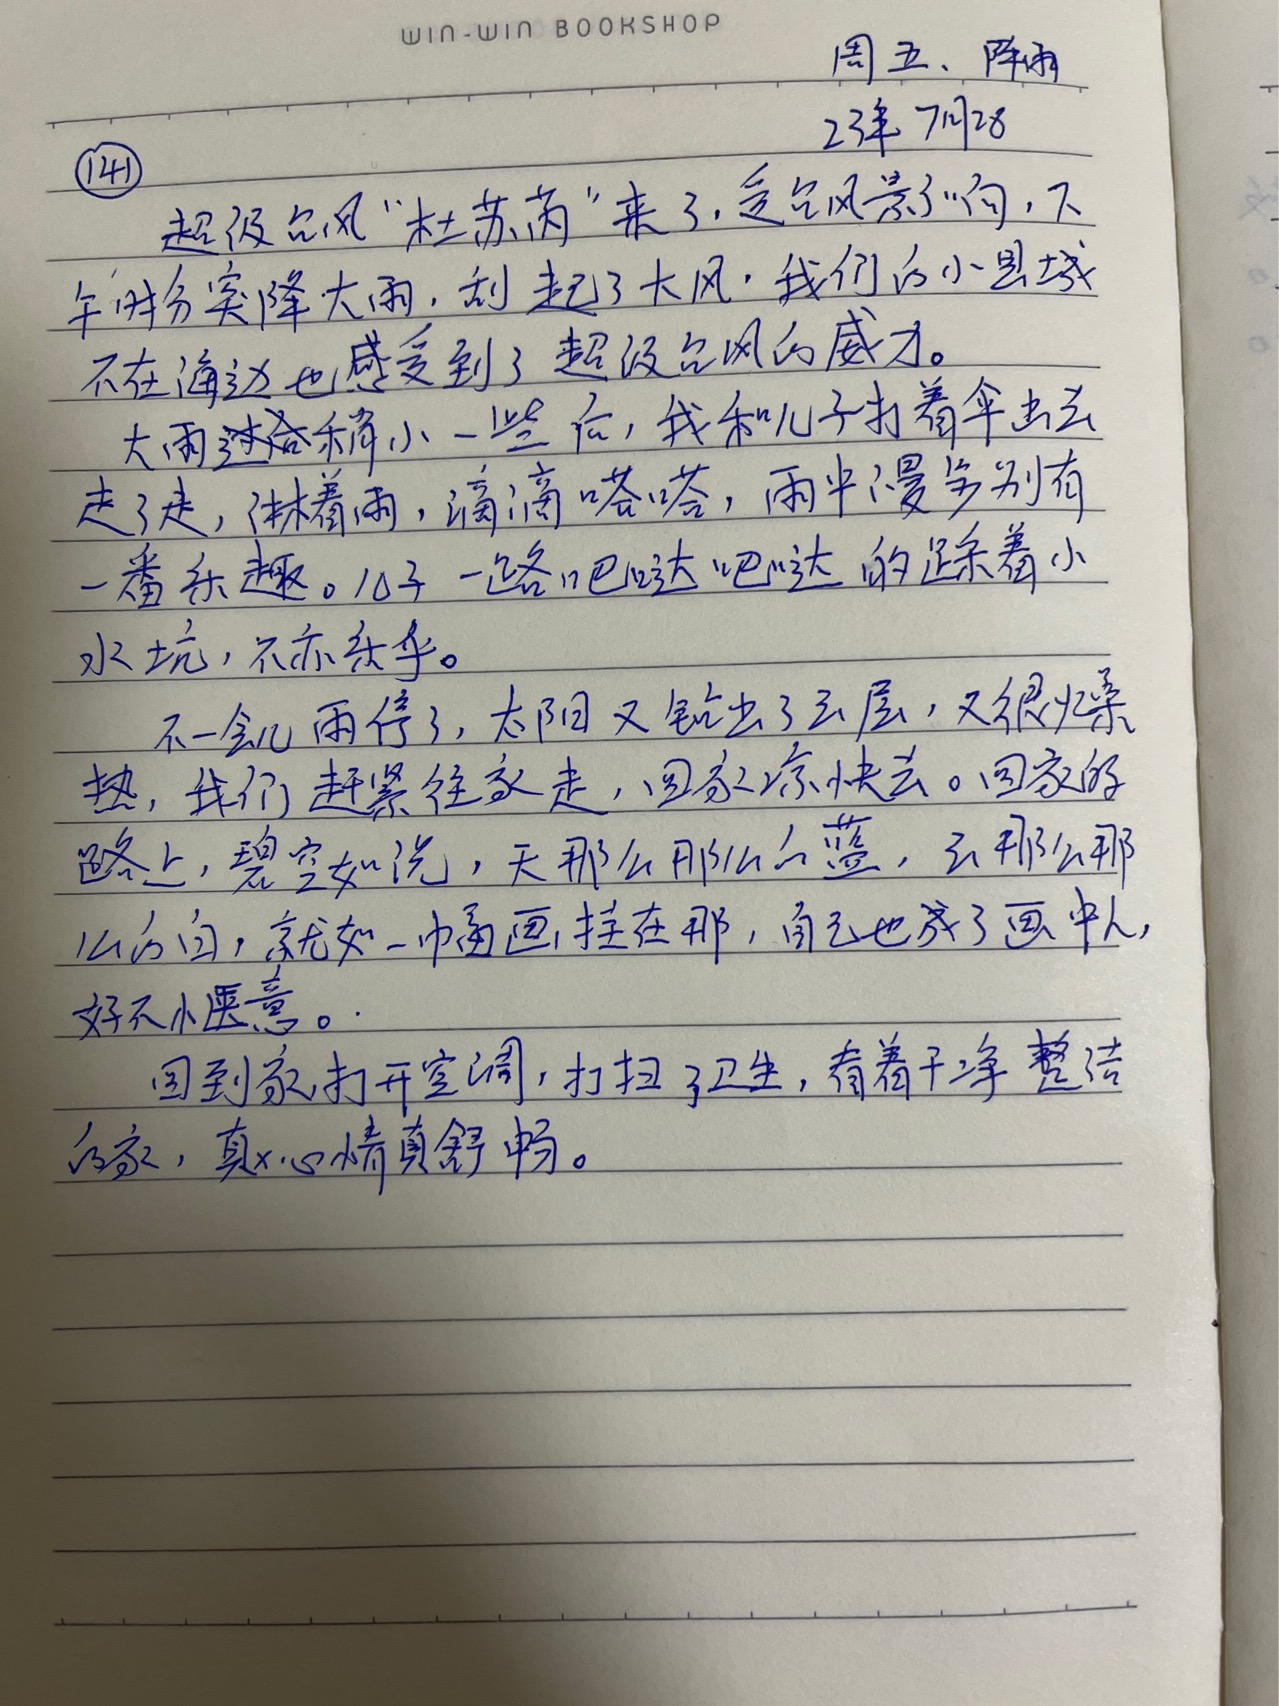 WIN-WIN BOOKSHOP
周五、阵雨
23年7月28
141
超级台风“杜苏芮”来了，受台风影响，下
午时分突降大雨，刮起了大风。我们的小县城
不在海边也感受到了超级台风的威力。
大雨过后稍小一些后，我和儿子打着伞出去
走了走，淋着雨，滴滴嗒嗒，雨中漫步别有
一番乐趣。儿子一路吧哒吧哒的踩着小
水坑，不亦乐乎。
不一会儿雨停了，太阳又钻出了云层，又很燥
热，我们赶紧往家走，回家凉快去。回家的
路上，碧空如洗，天那么那么的蓝，云那么那
么的白，就如一幅画挂在那，自己也成了画中人，
好不惬意。
回到家打开空调，打扫了卫生，看着干净整洁
的家，真心情真舒畅。